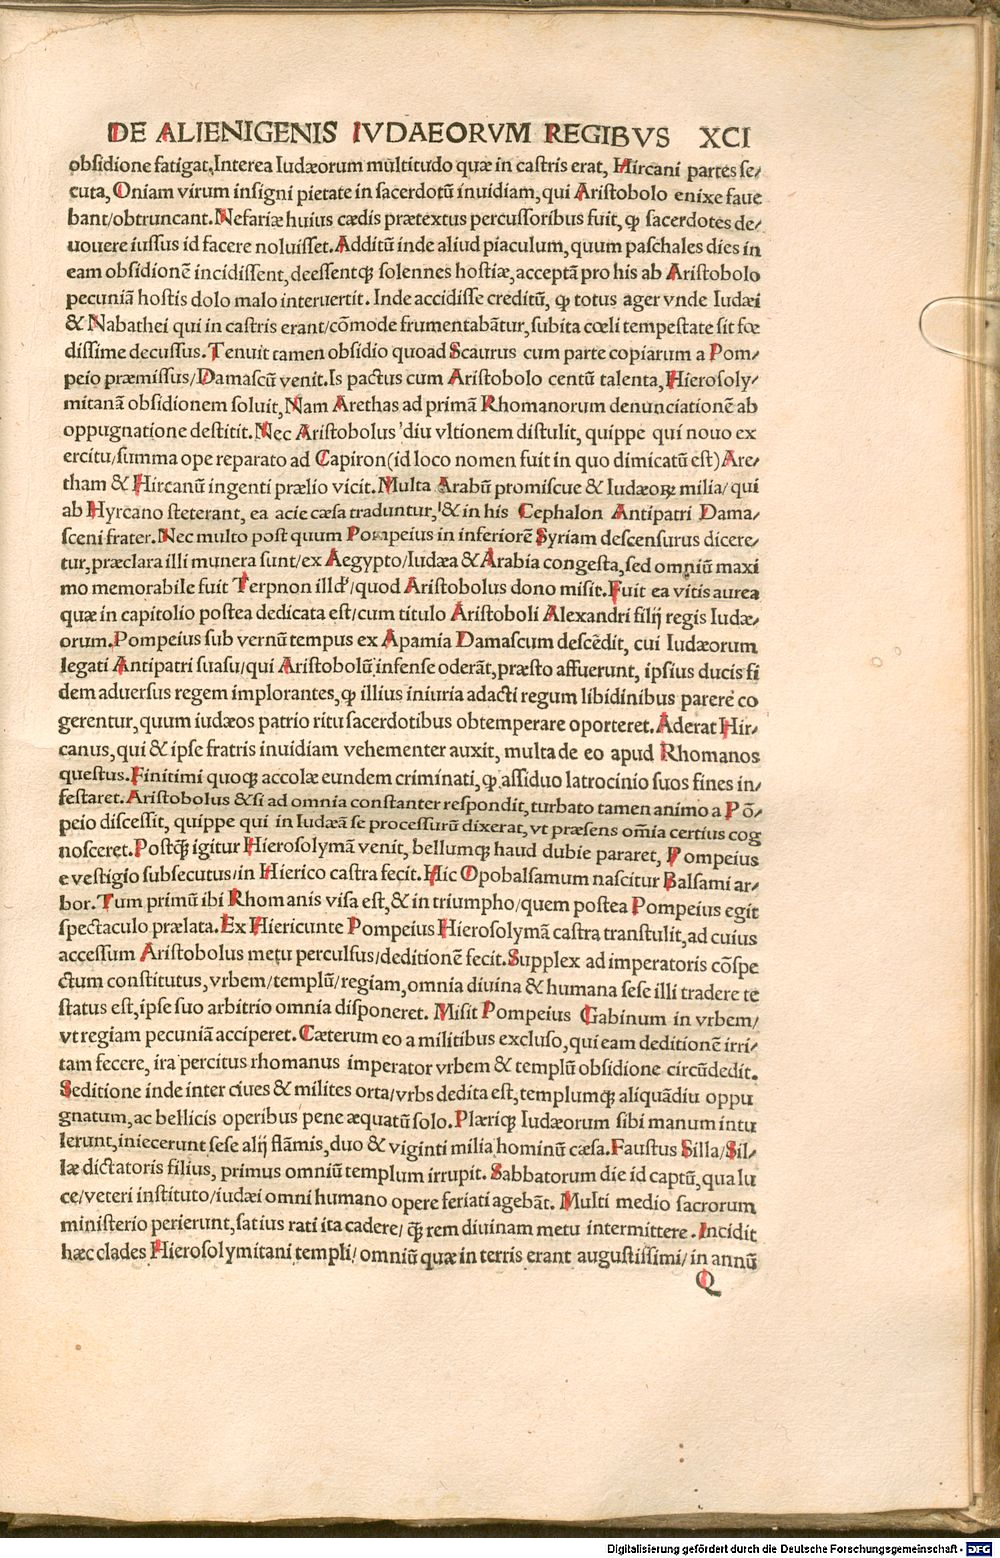 DE ALIENIGENIS IVDAEORVM REGIBVS XCI
obsidione fatigat. Interea Iudæorum multitudo quæ in castris erat, Hircani partes se/
cuta, Oniam virum insigni pietate in sacerdotū inuidiam, qui Aristobolo enixe faue
bant/obtruncant. Nefariæ huius cædis prætextus percussoribus fuit, ꝙ sacerdotes de/
uouere iussus id facere noluisset. Additū inde aliud piaculum, quum paschales dies in
eam obsidionē incidissent, deessentqꝫ solennes hostiæ, acceptā pro his ab Aristobolo
pecuniā hostis dolo malo interuertit. Inde accidisse creditū, ꝙ totus ager vnde Iudæi
& Nabathei qui in castris erant/cōmode frumentabātur, subita cœli tempestate sit fœ
dissime decussus. Tenuit tamen obsidio quoad Scaurus cum parte copiarum a Pom/
peio præmissus/Damascū venit. Is pactus cum Aristobolo centū talenta, Hierosoly/
mitanā obsidionem soluit, Nam Arethas ad primā Rhomanorum denunciationē ab
oppugnatione destitit. Nec Aristobolus 'diu vltionem distulit, quippe qui nouo ex
ercitu/summa ope reparato ad Capiron(id loco nomen fuit in quo dimicatū est) Are/
tham & Hircanū ingenti prælio vicit. Multa Arabū promiscue & Iudæoꝝ milia/ qui
ab Hyrcano steterant, ea acie cæsa traduntur, & in his Cephalon Antipatri Dama/
sceni frater. Nec multo post quum Pompeius in inferiorē Syriam descensurus dicere/
tur, præclara illi munera sunt/ex Aegypto/Iudæa & Arabia congesta, sed omniū maxi
mo memorabile fuit Terpnon illd'/quod Aristobolus dono misit. Fuit ea vitis aurea
quæ in capitolio postea dedicata est/cum titulo Aristoboli Alexandri filij regis Iudæ/
orum. Pompeius sub vernū tempus ex Apamia Damascum descēdit, cui Iudæorum
legati Antipatri suasu/qui Aristobolū infense oderāt, præsto affuerunt, ipsius ducis fi
dem aduersus regem implorantes, ꝙ illius iniuria adacti regum libidinibus parere co
gerentur, quum iudæos patrio ritu sacerdotibus obtemperare oporteret. Aderat Hir/
canus, qui & ipse fratris inuidiam vehementer auxit, multa de eo apud Rhomanos
questus. Finitimi quoqꝫ accolæ eundem criminati, ꝙ assiduo latrocinio suos fines in/
festaret. Aristobolus & si ad omnia constanter respondit, turbato tamen animo a Pō/
peio discessit, quippe qui in Iudæā se processurū dixerat, vt præsens oīa certius cog
nosceret. Postqꝫ igitur Hierosolymā venit, bellumqꝫ haud dubie pararet, Pompeius
e vestigio subsecutus/in Hierico castra fecit. Hic Opobalsamum nascitur Balsami ar/
bor. Tum primū ibi Rhomanis visa est, & in triumpho/quem postea Pompeius egit
spectaculo prælata. Ex Hiericunte Pompeius Hierosolymā castra transtulit, ad cuius
accessum Aristobolus metu perculsus/deditionē fecit. Supplex ad imperatoris cōspe
ctum constitutus, vrbem/templū/regiam, omnia diuina & humana sese illi tradere te
status est, ipse suo arbitrio omnia disponeret. Misit Pompeius Gabinum in vrbem/
vt regiam pecuniā acciperet. Cæterum eo a militibus excluso, qui eam deditionē irri/
tam fecere, ira percitus rhomanus imperator vrbem & templū obsidione circūdedit.
Seditione inde inter ciues & milites orta/vrbs dedita est, templumqꝫ aliquādiu oppu
gnatum, ac bellicis operibus pene æquatū solo. Plæriqꝫ Iudæorum sibi manum intu
lerunt, iniecerunt sese alij flāmis, duo & viginti milia hominū cæsa. Faustus Silla/Sil/
læ dictatoris filius, primus omniū templum irrupit. Sabbatorum die id captū, qua lu
ce/veteri instituto/iudæi omni humano opere feriati agebāt. Multi medio sacrorum
ministerio perierunt, satius rati ita cadere/ qꝫ rem diuinam metu intermittere. Incidit
hæc clades Hierosolymitani templi/ omniū quæ in terris erant augustissimi/ in annū
Q
Digitalisierung gefördert durch die Deutsche Forschungsgemeinschaft - DFG